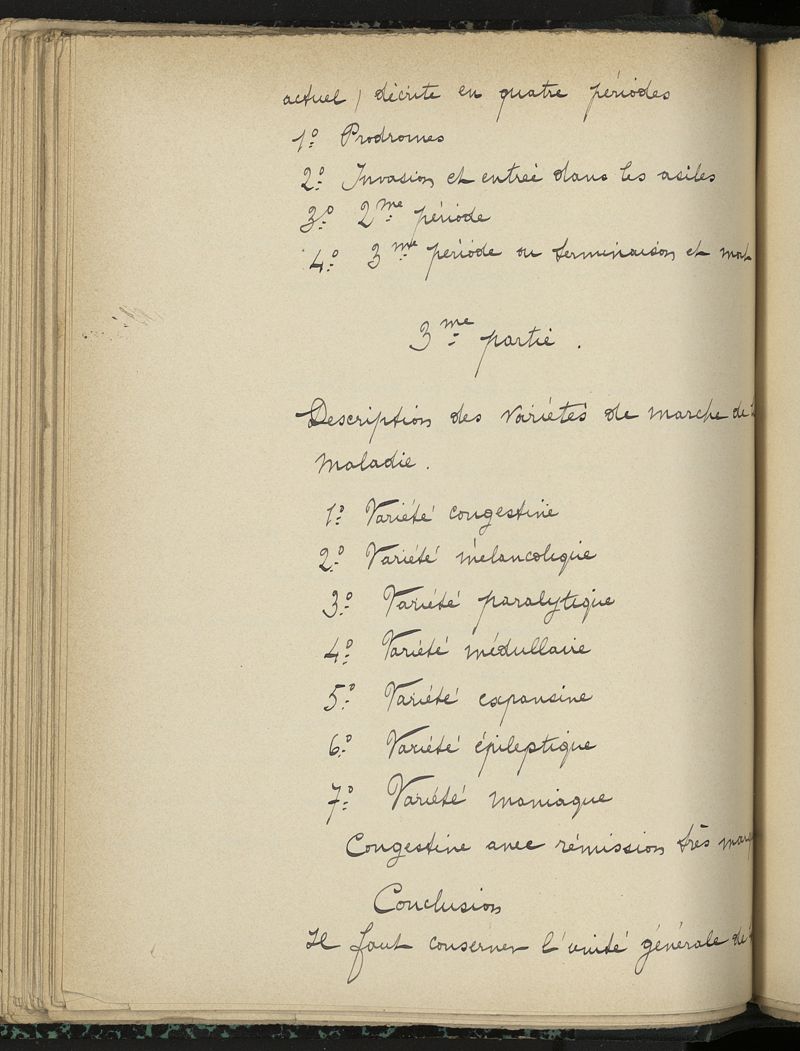 actuel) décrite en quatre périodes
1º Prodromes
2º Invasion et entrée dans les asiles
3º 2me période
4º 3me période ou terminaison et mort
3me partie.
Description des variétés de marche de
maladie.
1º Variété congestive
2º Variété mélancolique
3º Variété paralytique
4º Variété médullaire
5º Variété expansive
6º Variété épileptique
7º Variété maniaque
Congestive avec rémission très
Conclusion
Il faut conserver l'unité générale de